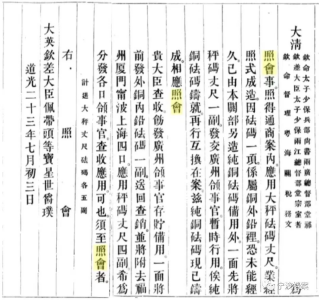 大清
欽命太子少保兵部尚書兩廣總督部堂祁
欽差大臣太子少保兩江總督部堂宗室耆
欽命督理粵海關稅務文
為
照會事照得通商案內應用大秤砝碼丈尺業經
照式成造因砝碼一項係屬銅外鉛裡恐未能經
久已由本關部另造純銅砝碼備用外一面先將
秤碼丈尺一副發交廣州領事官暫時行用俟純
銅砝碼鑄就再行互換在案茲純銅砝碼現已鑄
成相應照會
貴大臣查收飭發廣州領事官存貯備用一面將
前發外銅內鉛砝碼一副送回查銷並將附去福
州厦門甯波上海四口應用秤碼丈尺四副希為
分發各口領事官查收應用可也須至照會者
計送大秤丈尺砝碼各五副
右照會
大英欽差大臣佩帶頭等寶星世襲璞
道光二十三年七月初三日